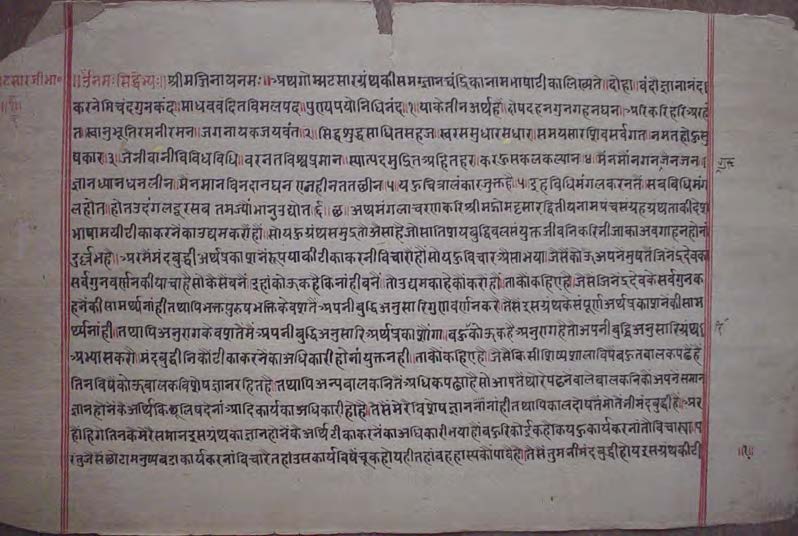 टसारजीभा॰
॥ ॐनमः सिद्धेभ्यः॥ श्रीमज्जिनायनमः॥ अथगोम्मटसारग्रंथकीसम्यग्ज्ञानचंद्रिकानामभाषाटीकालिख्यते॥ दोहा॥ वंदौज्ञानानंद
करनेमिचंदगुनकंद॥ माधववंदितविमलपद॥ पुण्यपयोनिधिनंद॥१॥ दोषदहनगुनगहनघन॥ अरिकरिहरिअरहं
त॥ स्वानुभूतिरमनीरमन॥ जगनायकजयवंत॥२॥ सिद्धशुद्धसाधितसहज॥ स्वरससुधारसधार॥ समयसारशिवसर्वगत॥ नमतहोऊसु
षकार॥३॥ जैनीवानीविविधविधि॥ वरनतविश्वप्रमान॥ स्यात्पदमुद्रितअहितहर॥ करऊसकलकल्यान॥४॥ मैंनमोंनगनजैनजन॥
ज्ञानध्यानधनलीन॥ मैनमानविनदानघन॥ एनहीनतनछीन॥५॥ यऊचित्रालंकारजुक्तहै॥ इहविधिमंगलकरनतैं॥ सबविधिमंग
लहोत॥ होतउदंगलदूरसब॥ तमज्योंभानुउद्योत॥६॥ अथमंगलाचरणकरिश्रीमद्गोमट्टसारद्वितीयनामपंचसंग्रहग्रंथताकीदेश
भाषामयीटीकाकरनेकाउद्यमकरौहौं॥ सोयऊग्रंथसमुद्रतोऐसाहैजोसातिशयबुद्धिबलसंयुक्तजीवनिकरिभीजाकाअवगाहनहोना
दुर्लभहै॥ अरमैंमंदबुद्धीअर्थप्रकाशनैंरूपयाकीटीकाकरनीविचारौंहौं॥ सोयऊविचारऐसाभया॥ जैसैंकोऊअपनेमुषतैंजिनेंद्रदेवका
सर्वगुनवर्णनकीयाचाहैसोकैसेंबनैं॥ इहांकोऊकहैकिनांहीबनैं॥ तौउद्यमकाहेकौंकरौहौ॥ ताकौंकहिएहै॥ जैसेंजिनेंद्रदेवकेसर्वगुनक
हनेंकीसामर्थ्यनांही॥ तथापिभक्तपुरुषभक्तिकेवशतैं॥ अपनीबुद्धिअनुसारिगुणवर्णनकरै॥ तैसेंइसग्रंथकेसंपूर्णअर्थप्रकाशनेंकीसाम
र्थ्यनांही॥ तथापिअनुरागकेवशतैंमैं॥ अपनीबुद्धिअनुसारिअर्थप्रकाशोंगा॥ बऊरिकोऊकहै॥ अनुरागहैतोअपनीबुद्धिअनुसारिग्रंथ
अभ्यासकरौ॥ मंदबुद्धीनिकौंटीकाकरनेकाअधिकारीहोनांयुक्तनही॥ ताकौंकहिएहै॥ जैसेंकिसीशिष्यशालाविषैंबऊतबालकपढेंहैं॥
तिनविषैंकोऊबालकविशेषज्ञानरहितहै॥ तथापिअन्यबालकनितैंअधिकपढ्याहै॥ सोआपतैंथोरेपढनेवालेबालकनिकौंअपनेसमान
ज्ञानहोनेंकेअर्थि॥ किछूलिषदेनांआदिकार्यकाअधिकारीहोहै॥ तैसेंमेरेविशेषज्ञाननांही॥ तथापिकालदोषतैंमोतैंभीमंदबुद्धीहैं॥ अर
होंहिगेतिनकेमेरेसमानइसग्रंथकाज्ञानहोनेंकेअर्थि॥ टीकाकरनेकाअधिकारीभयाहौं॥ बऊरिकोईकहैकियऊकार्यकरनांतोविचास्या॥ प
रंतुजैसेंछोटामनुष्यबडाकार्यकरनांविचारै॥ तहांउसकार्यविषैंचूकहोयही॥ तहांवहहास्यकौंपावैहै॥ तैसेंतुमभीमंदबुद्धीहोयइसग्रंथकीटी
॥१॥